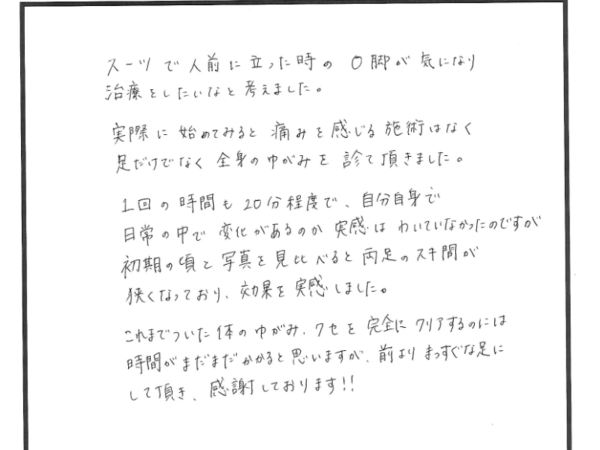 スーツで人前に立った時の O脚が気になり
治療をしたいなと考えました。
実際に始めてみると痛みを感じる施術はなく
足だけでなく全身のゆがみを診て頂きました。
1回の時間も20分程度で、自分自身で
日常の中で変化があるのか実感はわいていなかったのですが
初期の頃と写真を見比べると両足のスキ間が
狭くなっており、効果を実感しました。
これまでついた体のゆがみ、クセを完全にクリアするのには
時間がまだまだかかると思いますが、前よりまっすぐな足に
して頂き、感謝しております!!